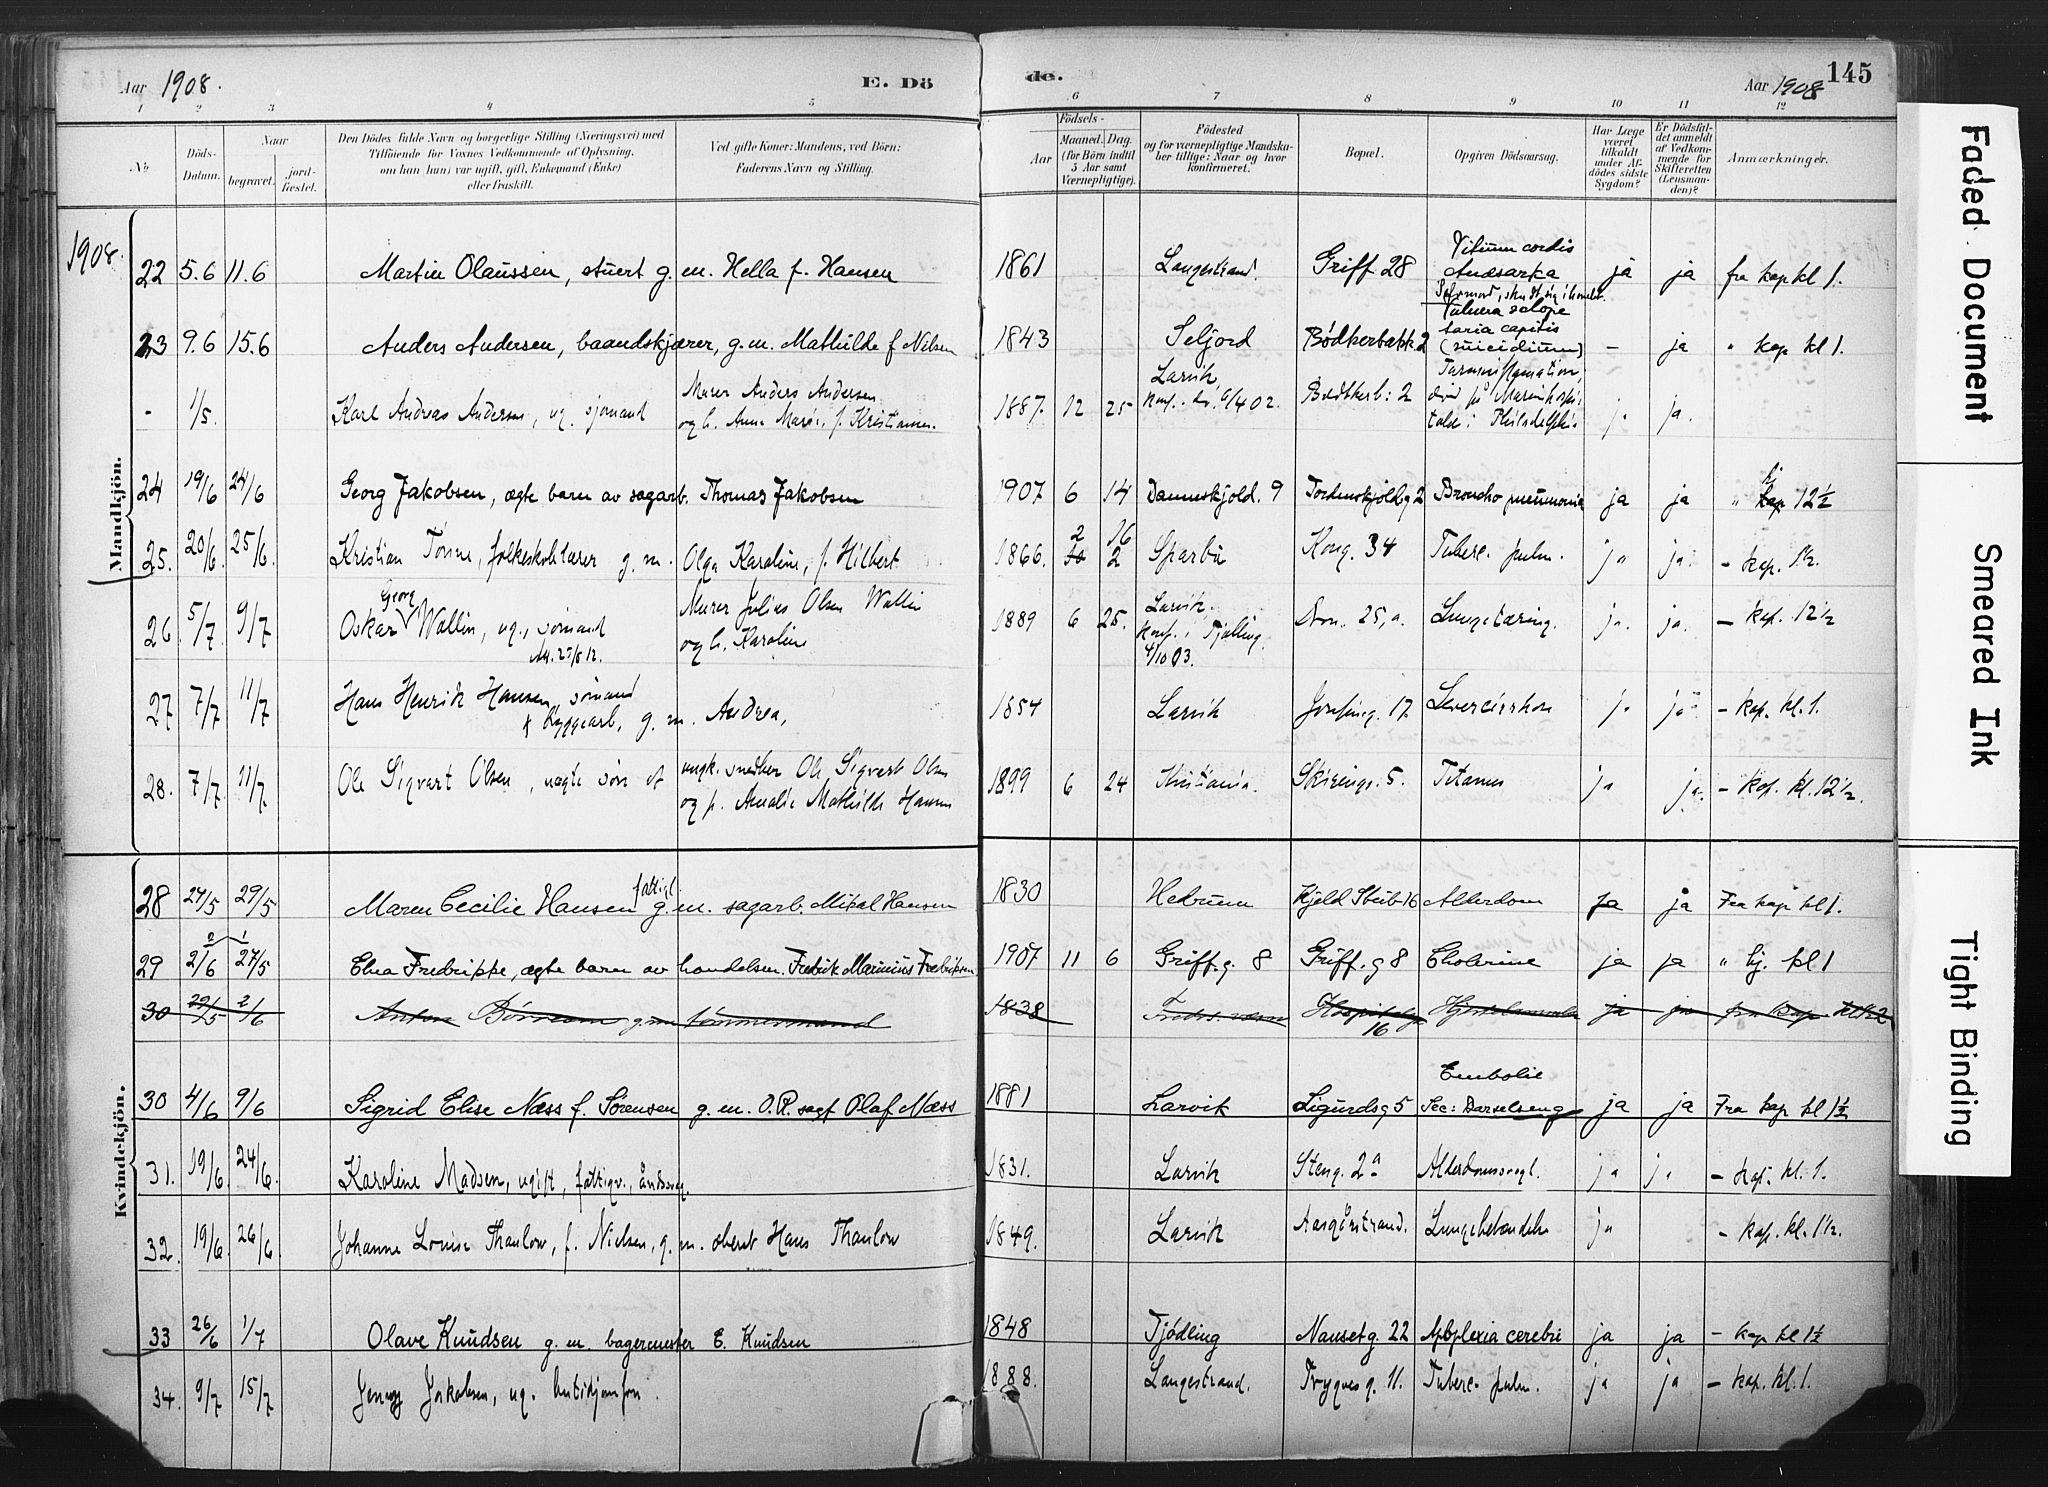 Aar 1908.
E. Dö
de.
Aar 1908
145
1 2 3 4 5 6 7 8 9 10 11 12
No
Döds-Datum.
Naar
begravet.
jord-fæstet.
Den Dödes fulde Navn og borgerlige Stilling (Næringsvei) med
Tilföiende for Voxnes Vedkommende af Oplysning,
om han (hun) var ugift, gift, Enkemand (Enke)
eller fraskilt.
Ved gifte Koner: Mandens, ved Börn:
Faderens Navn og Stilling.
Födsels-
Aar
Maaned. Dag.
(for Börn indtil
5 Aar samt
Værnepligtige).
Födested
og for værnepligtige Mandska-
ber tillige: Naar og hvor
konfirmeret.
Bopæl.
Opgiven Dödsaarsag.
Har Læge
været
tilkaldt
under Af-
dödes sidste
Sygdom?
Er Dödsfal-
det anmeldt
af Vedkom-
mende for
Skifteretten
(Lensman-
den)?
Anmærkninger.
1908.
Mandkjön.
22 5.6 11.6 Martin Olaussen, stuert g. m. Hella f. Hansen 1861 Langestrand. Griff 28 Vitium cordis Anasarka ja ja fra kap kl 1.
23 9.6 15.6 Anders Andersen, baandskjærer, g. m. Mathilde f Nilsen 1843 Seljord Bødkerbakk 2 Selvmord, skudt sig i hovedet. Vulnera sclopetaria capitis (suicidium) - ja " kap kl 1.
- 1/5. Karl Andreas Andersen, ug. sjømand Murer Anders Andersen og h. Anne Marie, f. Kristiansen. 1887. 12 25 Larvik, konf. 6/4 02. Bødkerb: 2 Tarminflamation, død på Marinhospitalet i Philadelphia ja ja.
24 19/6 24/6 Georg Jakobsen, ægte barn av sagarb. Thomas Jakobsen 1907 6 14 Danneskjold. 9 Tordenskjoldg 2 Broncho pneumonia ja ja " hj kap 12 1/2
25. 20/6 25/6. Kristian Tønne, folkeskolelærer g. m. Olga Karoline, f. Hilbert 1866. 10 2 2 16 Sparbu Kong. 34 Tuberc. pulm. ja ja. - kap. 1 1/2.
26. 5/7 9/7 Oskar Georg Wallin, ug., sømand Att. 25/8 12. Murer Julius Olsen Wallin og h. Karoline 1889 6 25. Larvik. konf. i Tjølling 4/10 03. Dron. 25, a. Lungetæring. ja. ja. - kap. 12 1/2
27 7/7 11/7 Hans Henrik Hansen, sømand & bryggearb, g. m. Andrea, 1854 Larvik Jomfrug. 17. Levercirrhose ja ja - kap. kl. 1.
28. 7/7. 11/7. Ole Sigvart Olsen, uægte søn af ungk. snedker Ole Sigvart Olsen og p. Amalie Mathilde Hansen 1899 6 24 Kristiania. Skiringss. 5. Tetanus ja ja. - kap. kl. 12 1/2.
Kvindekjön.
28 24/5 29/5 Maren Cecilie Hansen fattigl. g. m. sagarb. Mikal Hansen 1830 Hedrum Kjeld Stub 16 Alderdom ja ja Fra kap kl 1.
29 2/6 27/5 2 1 Elna Fredrippe, ægte barn av handelsm. Fredrik Marinius Fredriksen 1907 11 6 Griff. g. 8 Griff. g 8 Cholerine ja ja " hj. kl 1
30 29/5 2/6 Anton g. m. tømmermand 1838 Fredr. værn Hospitalg 16 Hjertelammelse ja ja fra kap kl 1 1/2
30 4/6 9/6 Sigrid Elise Næss f. Sørensen g. m. O. R. sagf Olaf Næss 1881 Larvik Sigurdsg 5 Embolie Sec: Barselseng ja ja Fra kap kl 1 1/2
31. 19/6. 24/6. Karoline Madsen, ugift, fattigv., åndssvag. 1831. Larvik Steng. 2a Alderdomssvagh. ja ja - kap. kl. 1.
32. 19/6. 26/6 Johanne Lovise Thaulow, f. Nielsen, g. m. oberst Hans Thaulow 1849. Larvik Aasgårdstrand. Lungebetændelse ja - kap. kl. 1 1/2.
33 26/6 1/7 Olave Knudsen g. m. bagermester E. Knudsen 1848 Tjødling Nansetg. 22 Apoplexia cerebri ja ja - kap kl 1 1/2
34. 9/7 15/7 Jenny Jakobsen, ug. butikjomfru. 1888. Langestrand. Trygvesg. 11. Tuberc. pulm. ja ja - kap. kl. 1.
Faded Document
Smeared Ink
Tight Binding